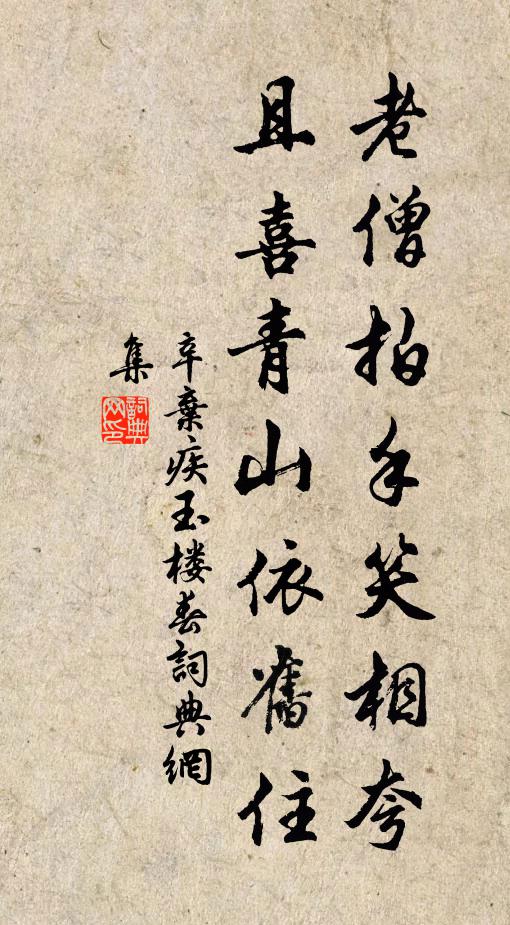 老僧拍手笑相夸
且喜青山依舊住
辛棄疾玉楼春詞典網
集
詞典
网印